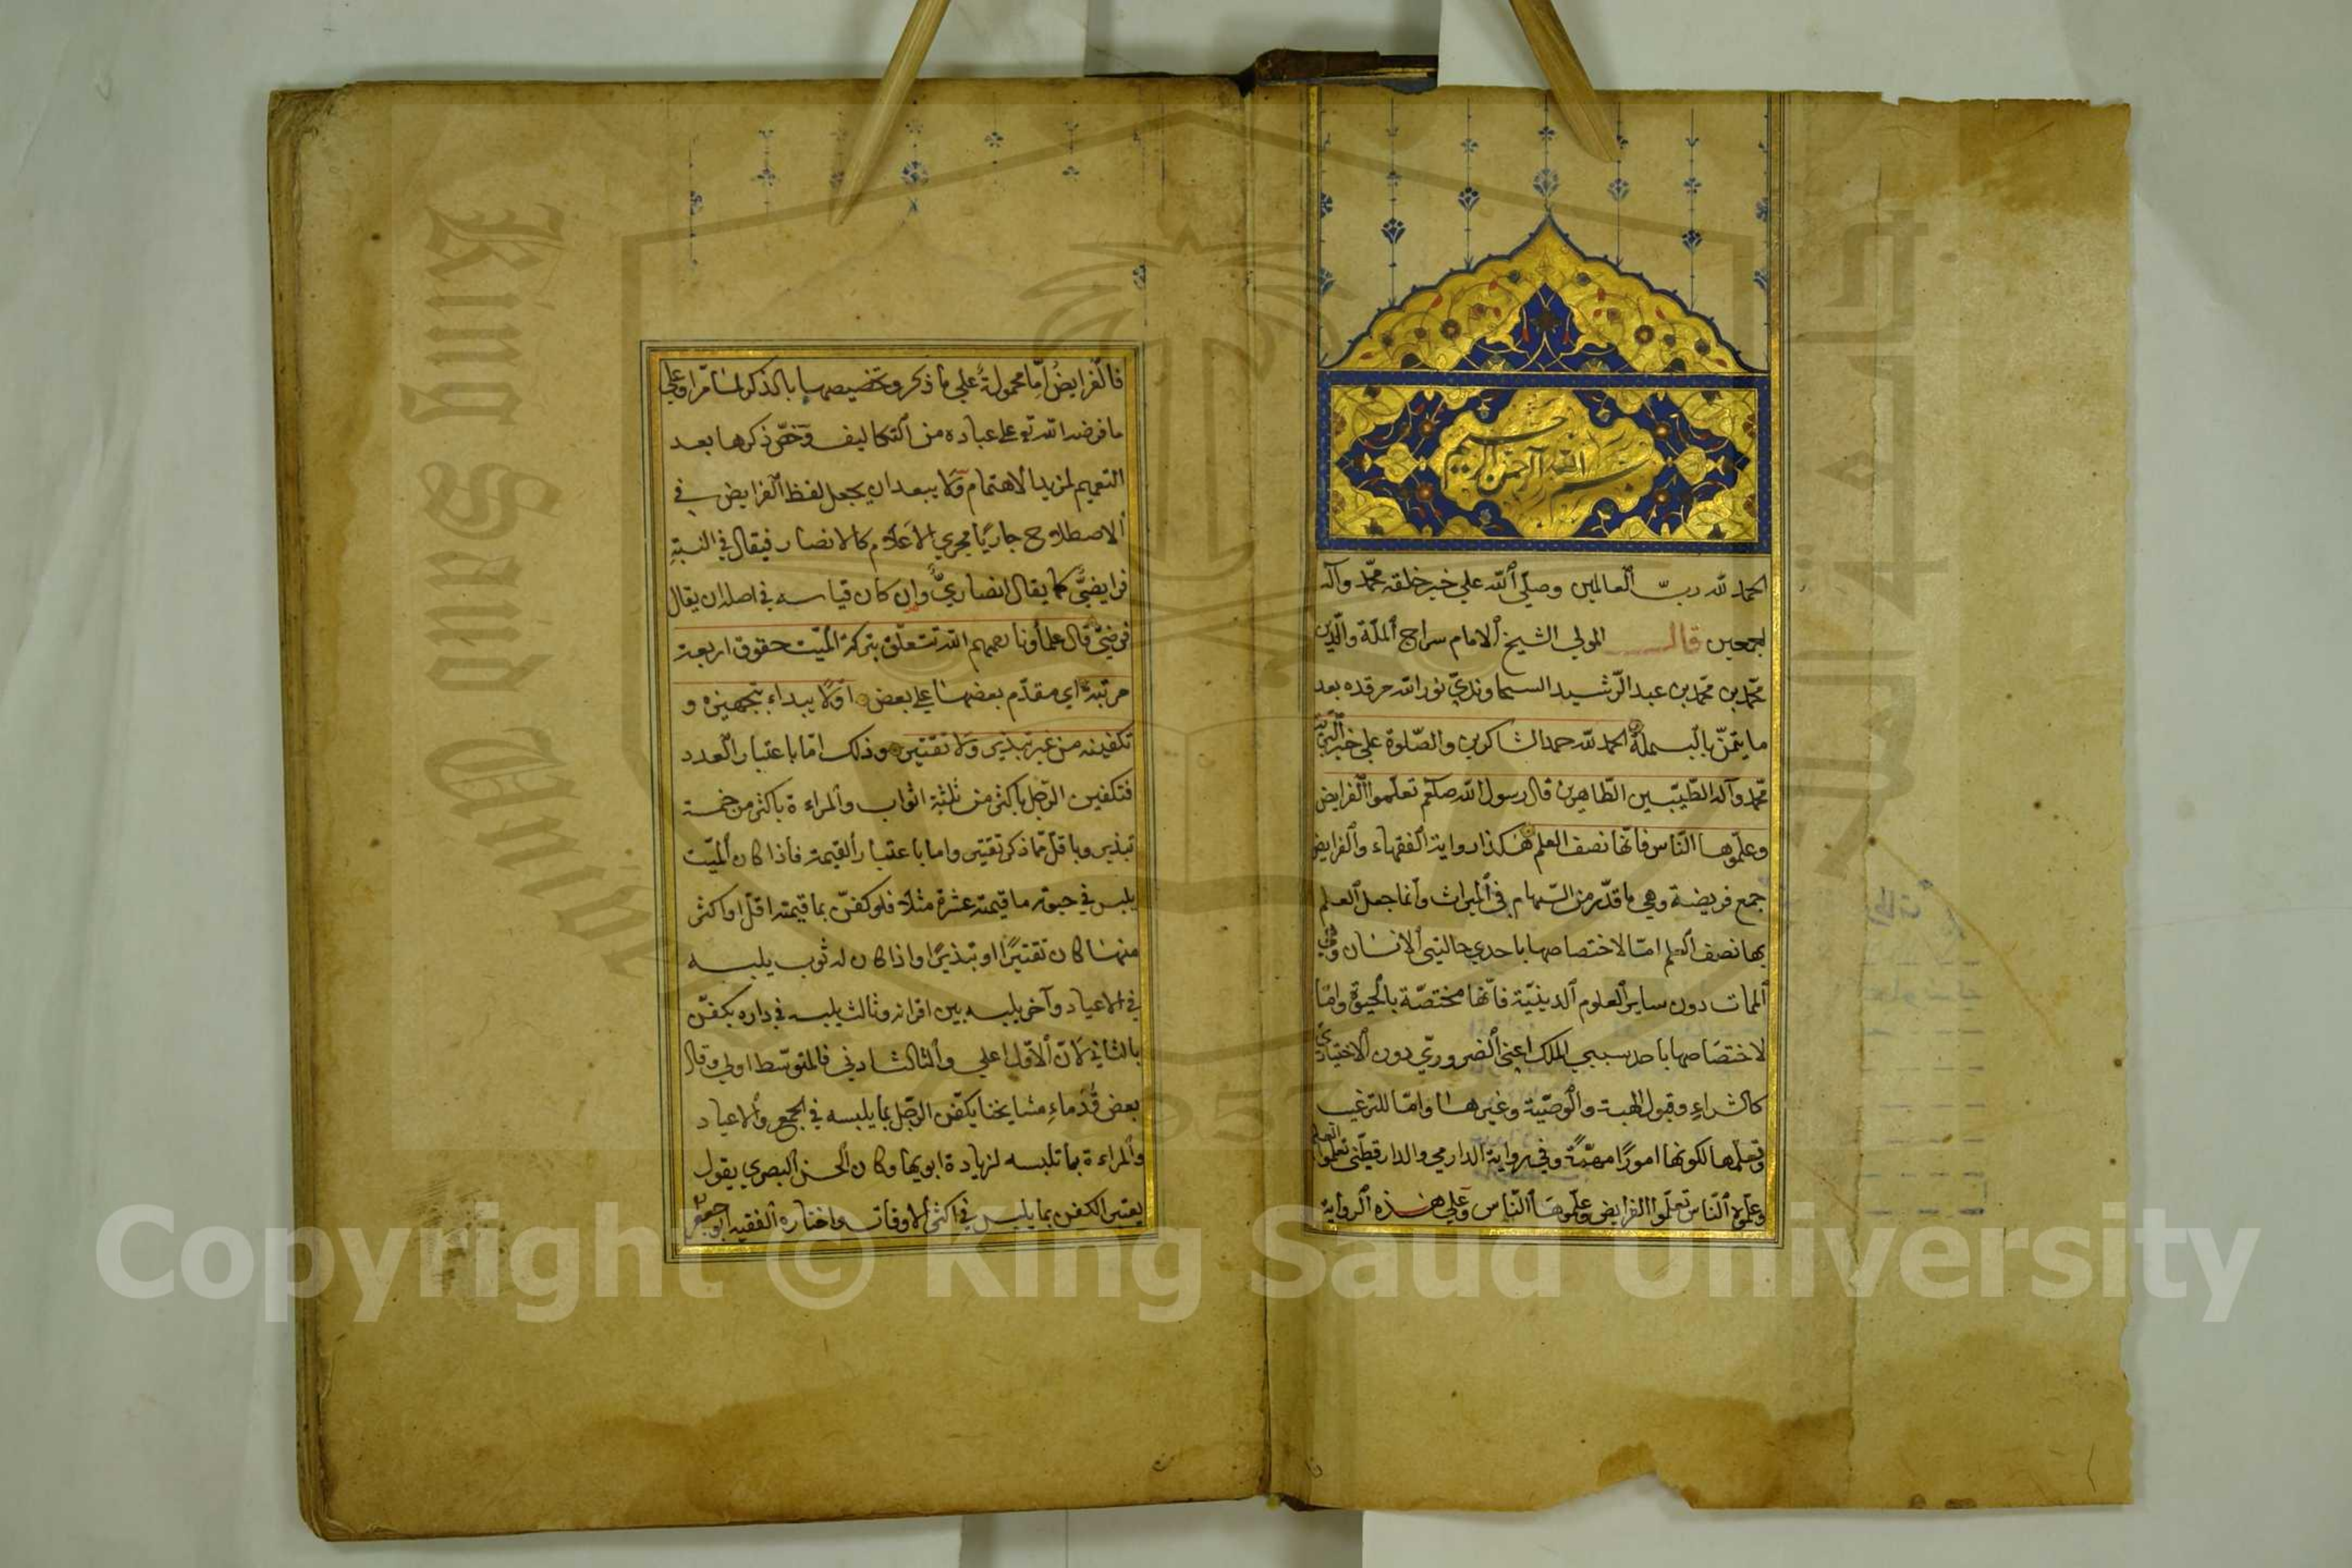 بسم الله الرحمن الرحيم
الحمد لله ربّ العالمين وصلّى الله على خير خلقه محمّد وآله
اجمعين قال المولى الشيخ الامام سراج الملّة والدّين
محمّد بن محمّد بن عبد الرّشيد السجاوندي نور الله مرقده بعد
ما يتمّن بالبسملة الحمد لله حمد الشاكرين والصّلوة على خير البريّة
محمّد وآله الطيّبين الطّاهرين قال رسول الله صلعم تعلّموا الفرايض
وعلّموها النّاس فانّها نصف العلم هكذا رواية الفقهاء والفرايض
جمع فريضة وهي ما قدّر من السّهام في الميراث وانّما جعل العلم
بها نصف العلم امّا لاختصاصها باحدى حالتي الانسان وهي
الممات دون ساير العلوم الدينيّة فانّها مختصّة بالحيوة وامّا
لاختصاصها باحد سببي الملك اعني الضروريّ دون الاختياريّ
كالشراء وقبول الهبة والوصيّة وغيرها وامّا للترغيب
وتعلّمها لكونها امورًا مهمّة وفي رواية الدارمي والدارقطّني تعلّموا العلم
وعلّموه النّاس تعلّموا الفرايض وعلّموها النّاس وعلى هذه الرواية
فالفرايض امّا محمولة على ما ذكر وتخصيصها بالذكر لما مرّ او على
ما فرضه الله تع على عباده من التكاليف وخصّ ذكرها بعد
التعميم لمزيد الاهتمام ولا يبعد ان يجعل لفظ الفرايض في
الاصطلاح جاريًا مجرى الاعلام كالانصار فيقال في النسبة
فرايضيٌّ كما يقال انصاريٌّ وان كان قياسه في اصله ان يقال
فرضيّ قال علماؤنا رحمهم الله تتعلّق بتركة الميّت حقوق اربعة
مرتّبة اي مقدّم بعضها على بعض اوّلا يبداء بتجهيزه و
تكفينه من غير تبذير ولا تقتير وذلك امّا باعتبار العدد
فتكفين الرّجل باكثر من ثلثة اثواب والمراءة باكثر من خمسة
تبذير وباقلّ ممّا ذكر تقتير واما باعتبار القيمة فاذا كان الميّت
يلبس في حيوته ما قيمته عشرة مثلا فلو كفّن بما قيمته اقلّ او اكثر
منها كان تقتيرًا او تبذيرًا واذا كان له ثوب يلبسه
في الاعياد وآخر يلبسه بين اقرانه وثالث يلبسه في داره يكفّن
بالثاني لانّ الاوّل اعلى والثالث ادنى فالمتوسّط اولى وقال
بعض قُدماء مشايخنا يكفّن الرّجل بما يلبسه في الجمع والاعياد
والمراءة بما تلبسه لزيادة ابويها وكان الحسن البصري يقول
يعتبر الكفن بما يلبس في اكثر الاوقات واختاره الفقيه ابو جعفر
King Saud University
Copyright © King Saud University